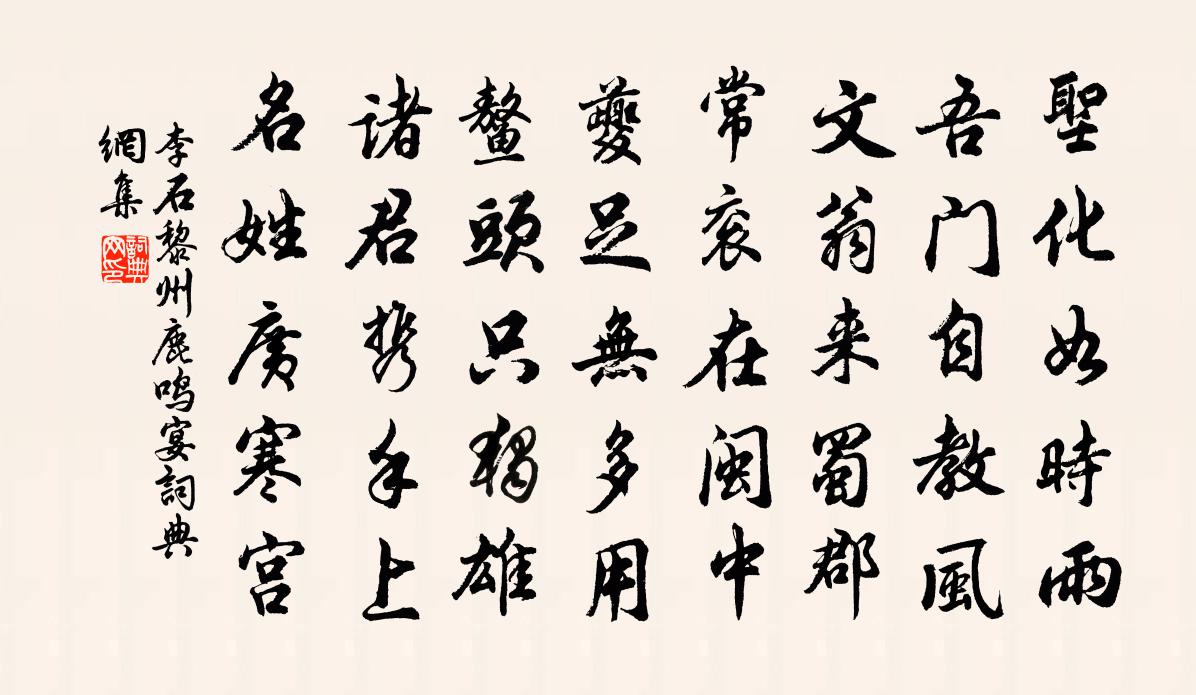 聖化如時雨
吾门自教風
文翁来蜀郡
常衮在闽中
夔足無多用
鰲頭只獨雄
诸君携手上
名姓廣寒宫
李石黎州鹿鸣宴詞典
網集
詞典
网印